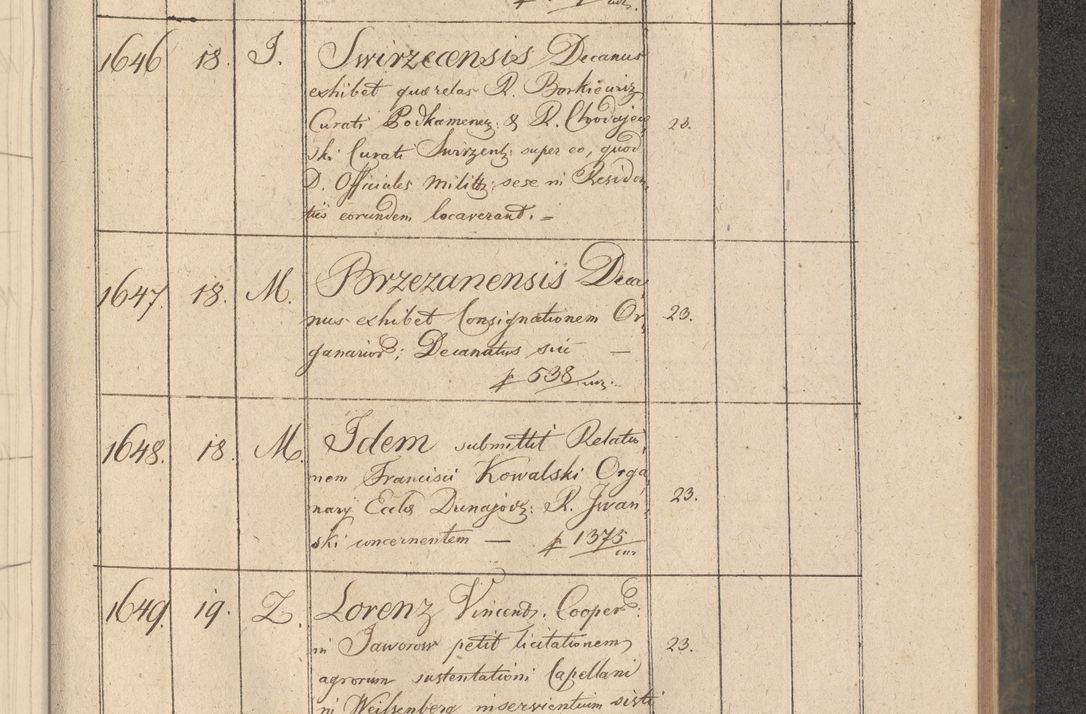 1646 18. J. Swirzecensis Decanus
exhibet quærelas R. Borkiewicz
Curati Podkamenez: & R. Chodajew 23.
ski Curati Swirzens: super eo, quod
D. Officiales Milit: sese in Residen
tiis eorundem locaverant. =
1647. 18. M. Brzezanensis Deca
nus exhibet Consignationem Or 23.
ganarior: Decanatus sui —
f 538
1648. 18. M. Idem submittit Relatio
nem Francisci Kowalski Orga
nary Eccles Dunajov: R. Iwan 23.
ski concernentem — f 1375
1649. 19. Z. Lorenz Vincent. Cooper:
in Jaworow petit licitationem 23.
agrorum sustentationi Capellani
in Weissenberg inservientium sisti